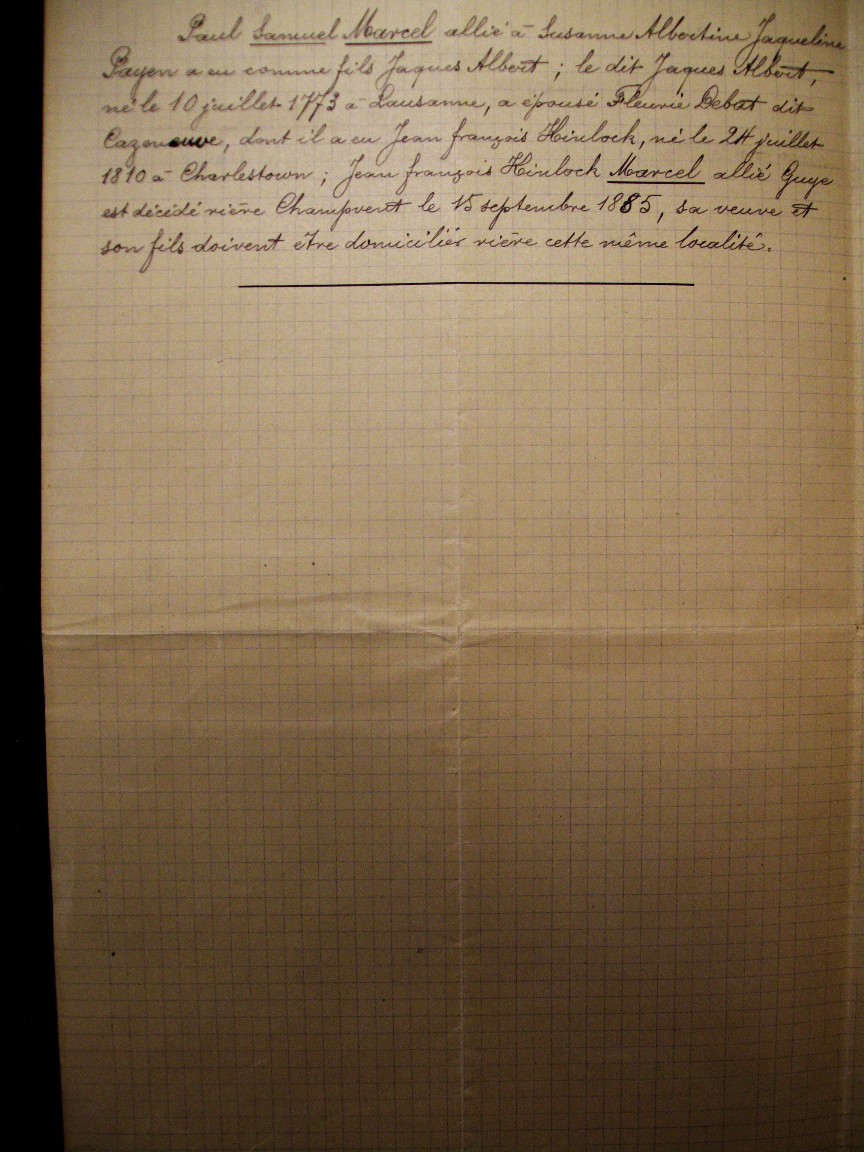 Paul Samuel Marcel allié à Susanne Albertine Jaqueline
Payen a eu comme fils Jaques Albert ; le dit Jaques Albert,
né le 10 juillet 1773 à Lausanne, a épousé Fleurie Debat dit
Cazeneuve, dont il a eu Jean françois Hinlock, né le 24 juillet
1810 à Charlestown ; Jean françois Hinlock Marcel allié Guye
est décédé rière Champvent le 15 septembre 1885, sa veuve et
son fils doivent être domiciliés rière cette même localité.